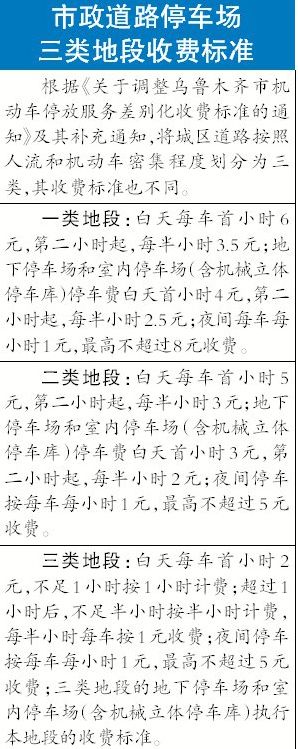 市政道路停车场
三类地段收费标准
根据《关于调整乌鲁木齐市机
动车停放服务差别化收费标准的通
知》及其补充通知,将城区道路按照
人流和机动车密集程度划分为三
类,其收费标准也不同。
一类地段:白天每车首小时6
元,第二小时起,每半小时3.5元;地
下停车场和室内停车场(含机械立体
停车库)停车费白天首小时4元,第二
小时起,每半小时2.5元;夜间每车每
小时1元,最高不超过8元收费。
二类地段:白天每车首小时5
元,第二小时起,每半小时3元;地下
停车场和室内停车场(含机械立体
停车库)停车费白天首小时3元,第
二小时起,每半小时2元;夜间停车
按每车每小时1元,最高不超过5元
收费。
三类地段:白天每车首小时2
元,不足1小时按1小时计费;超过1
小时后,不足半小时按半小时计费,
每半小时每车按1元收费;夜间停车
按每车每小时1元,最高不超过5元
收费;三类地段的地下停车场和室
内停车场(含机械立体停车库)执行
本地段的收费标准。